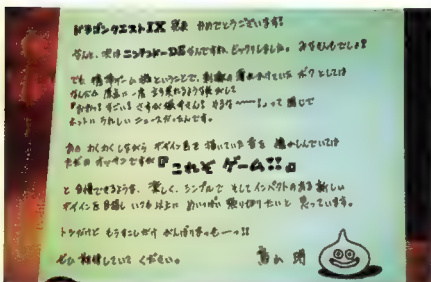 ドラゴンクエストIX 発表 おめでとうございます!
なんと、次はニンテンドーDSなんですね。ビックリしました。みなさんもでしょ?
でも 携帯ゲーム機ということで、刺激の ボクとしては
なんだか 原点に
『おおっ! すごい! さすが堀井さん! やるな〜〜!』って 感じで
ホントに うれしい ニュースだったんです。
あの わくわくしながら デザイン画を 描いていた 昔を 懐かしんでいては
ただの オッサンですが『これぞ ゲーム!!』
と 自慢できるような、楽しく、シンプルで そして インパクトのある 新しい
デザインを 目指し いつも以上に めいっぱい 張り切りたいと 思っています。
トシだけど もうすこしだけ がんばりまっせーーっ!!
ぜひ 期待していて ください。
鳥山 明